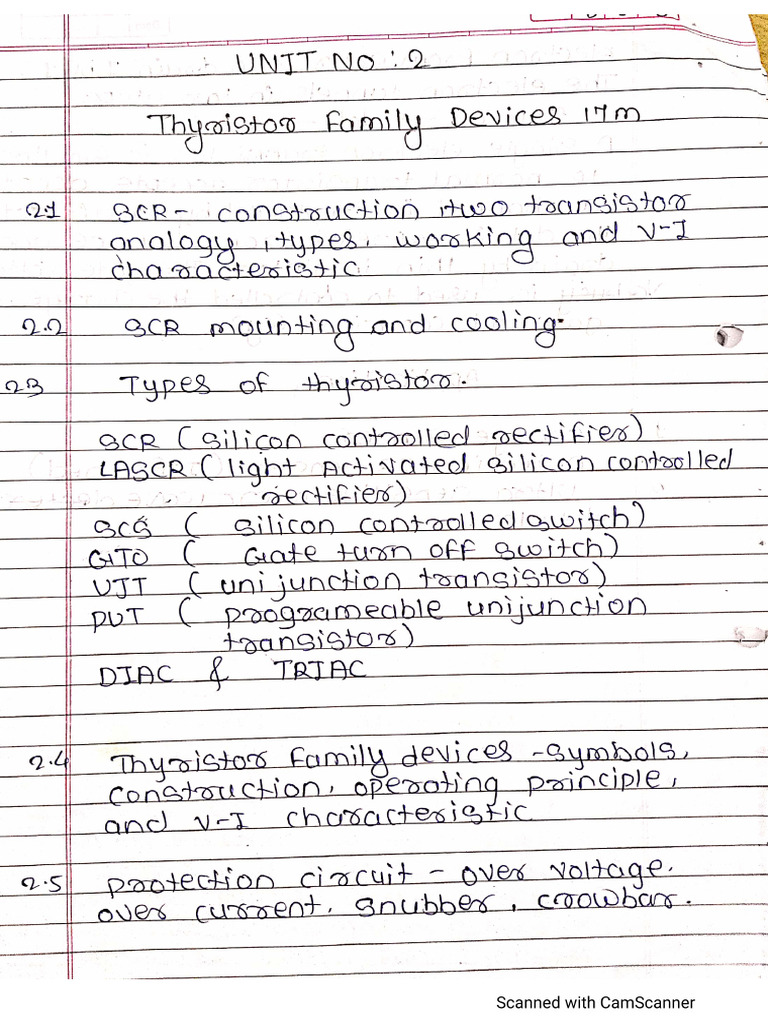 UNIT NO : 2
Thyristor Family Devices 17m
2.1 SCR - construction, two transistor
analogy, types, working and V-I
characteristic
2.2 SCR mounting and cooling.
2.3 Types of thyristor.
SCR (silicon controlled rectifier)
LASCR (light Activated silicon controlled
rectifier)
SCS ( silicon controlled switch)
GTO ( Gate turn off switch)
UJT ( uni junction transistor)
PUT ( programeable unijunction
transistor)
DIAC & TRIAC
2.4 Thyristor family devices - symbols,
construction, operating principle,
and V-I characteristic
2.5 protection circuit - over voltage,
over current, snubber, crowbar.
Scanned with CamScanner